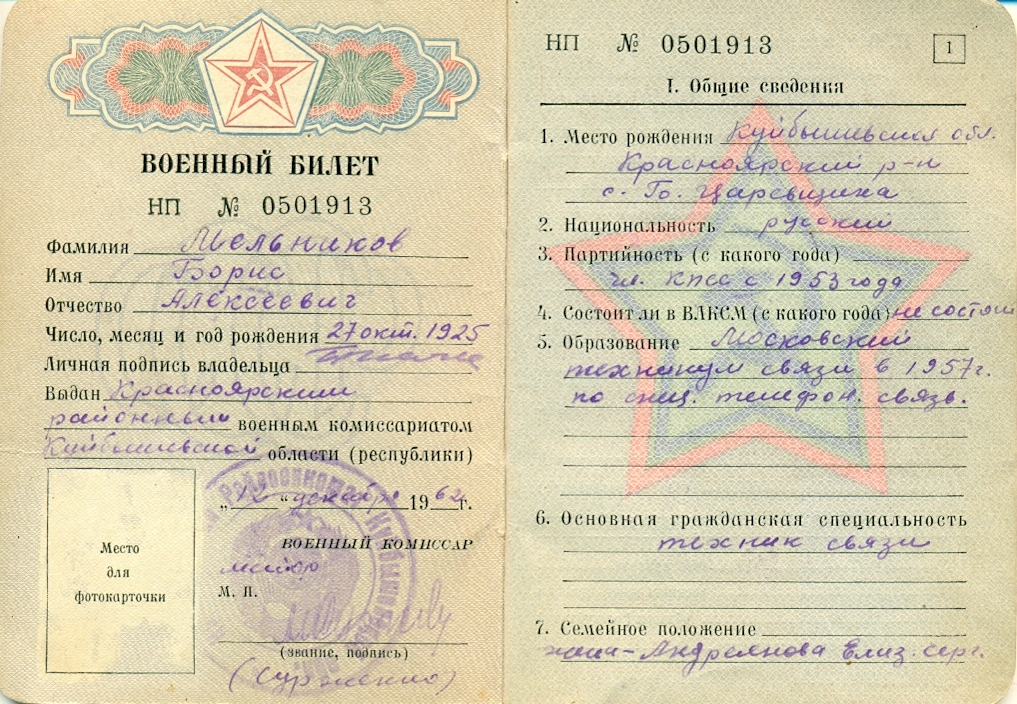 ВОЕННЫЙ БИЛЕТ
НП № 0501913
Фамилия Мельников
Имя Борис
Отчество Алексеевич
Число, месяц и год рождения 27 окт. 1925
Личная подпись владельца
Выдан Красноярским
районным военным комиссариатом
Куйбышевской области (республики)
„12“ декабря 1962 г.
ВОЕННЫЙ КОМИССАР
майор
М. П.
(звание, подпись)
Место
для
фотокарточки
НП № 0501913
1
I. Общие сведения
1. Место рождения Куйбышевская обл.
Красноярский р-н
с. Б. Царевщина
2. Национальность русский
3. Партийность (с какого года)
чл. КПСС с 1953 года
4. Состоит ли в ВЛКСМ (с какого года) не состоит
5. Образование Московский
техникум связи в 1957 г.
по спец. телефон. связь.
6. Основная гражданская специальность
техник связи
7. Семейное положение
жена - Андреянова Елиз. Серг.